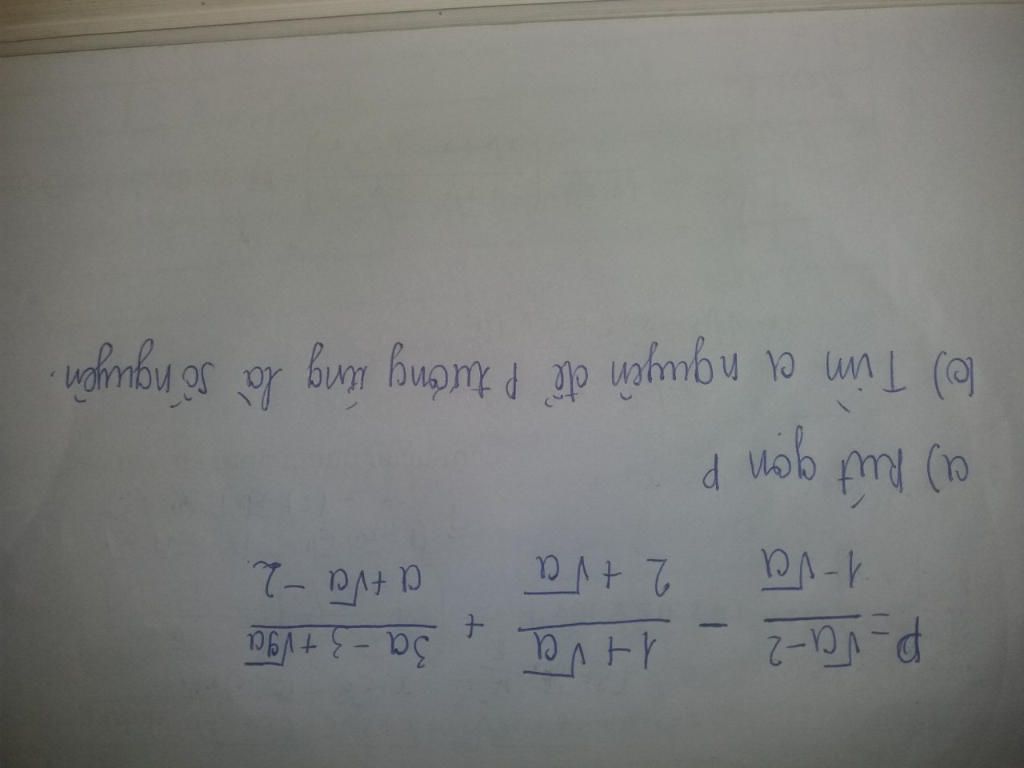 P = \frac{√a - 2}{1 - √a} - \frac{1 + √a}{2 + √a} + \frac{3a - 3 + √9a}{a + √a - 2}
a) Rút gọn P
b) Tìm a nguyên để P tương ứng là số nguyên.